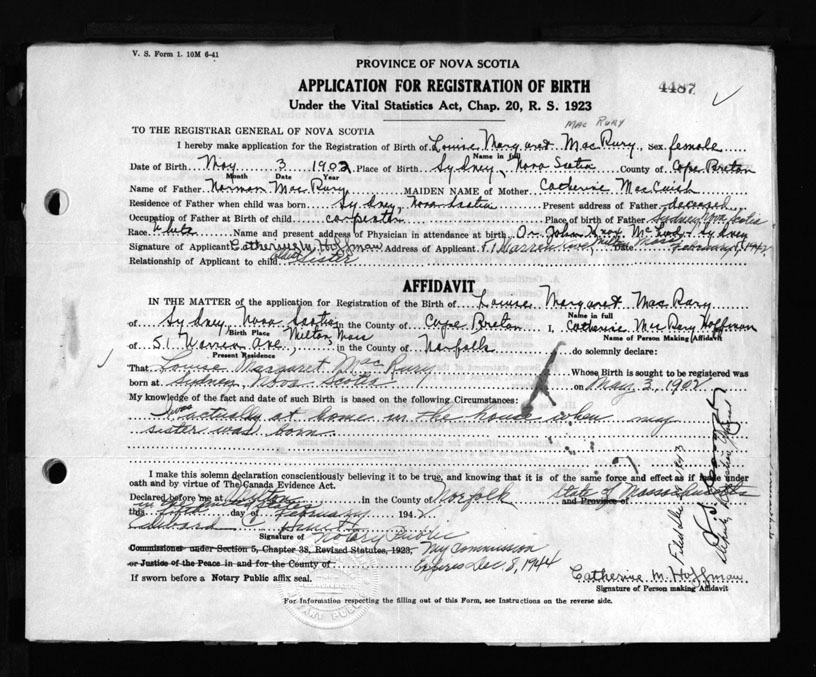 V. S. Form 1. 10M 6-41
PROVINCE OF NOVA SCOTIA
APPLICATION FOR REGISTRATION OF BIRTH
4487
Under the Vital Statistics Act, Chap. 20, R. S. 1923
MAC RURY
TO THE REGISTRAR GENERAL OF NOVA SCOTIA
I hereby make application for the Registration of Birth of Louise Margaret MacRury, Sex female
Name in full
Date of Birth May 3 1902 Place of Birth Sydney, Nova Scotia County of Cape Breton
Month Date Year
Name of Father Norman MacRury MAIDEN NAME of Mother Catherine MacCuish
Residence of Father when child was born Sydney, Nova Scotia Present address of Father deceased
Occupation of Father at Birth of child carpenter Place of birth of Father Sydney Nova Scotia
Race white Name and present address of Physician in attendance at birth Dr. John Knox McLeod - Sydney
Signature of Applicant Catherine M. Hoffman Address of Applicant 51 Warren Ave, Milton Mass Date February 1942
Relationship of Applicant to child older sister
AFFIDAVIT
IN THE MATTER of the application for Registration of the Birth of Louise Margaret MacRury
Name in full
of Sydney Nova Scotia in the County of Cape Breton I, Catherine MacRury Hoffman
Birth Place Name of Person Making Affidavit
of 51 Warren Ave, Milton Mass in the County of Norfolk do solemnly declare:
Present Residence
That Louise Margaret MacRury Whose Birth is sought to be registered was
born at Sydney, Nova Scotia on May 3, 1902
My knowledge of the fact and date of such Birth is based on the following Circumstances:
I was actually at home in the house when my
sister was born.
I make this solemn declaration conscientiously believing it to be true, and knowing that it is of the same force and effect as if made under
oath and by virtue of The Canada Evidence Act.
Declared before me at Milton in the County of Norfolk and Province of State of Massachusetts
in the United States
this day of February 1942
Edward C
Signature of Notary Public
Commissioner under Section 5, Chapter 38, Revised Statutes, 1923, My Commission
or Justice of the Peace in and for the County of Expires Dec 8, 1944
If sworn before a Notary Public affix seal.
Catherine M. Hoffman
Signature of Person making Affidavit
For Information respecting the filling out of this Form, see Instructions on the reverse side.